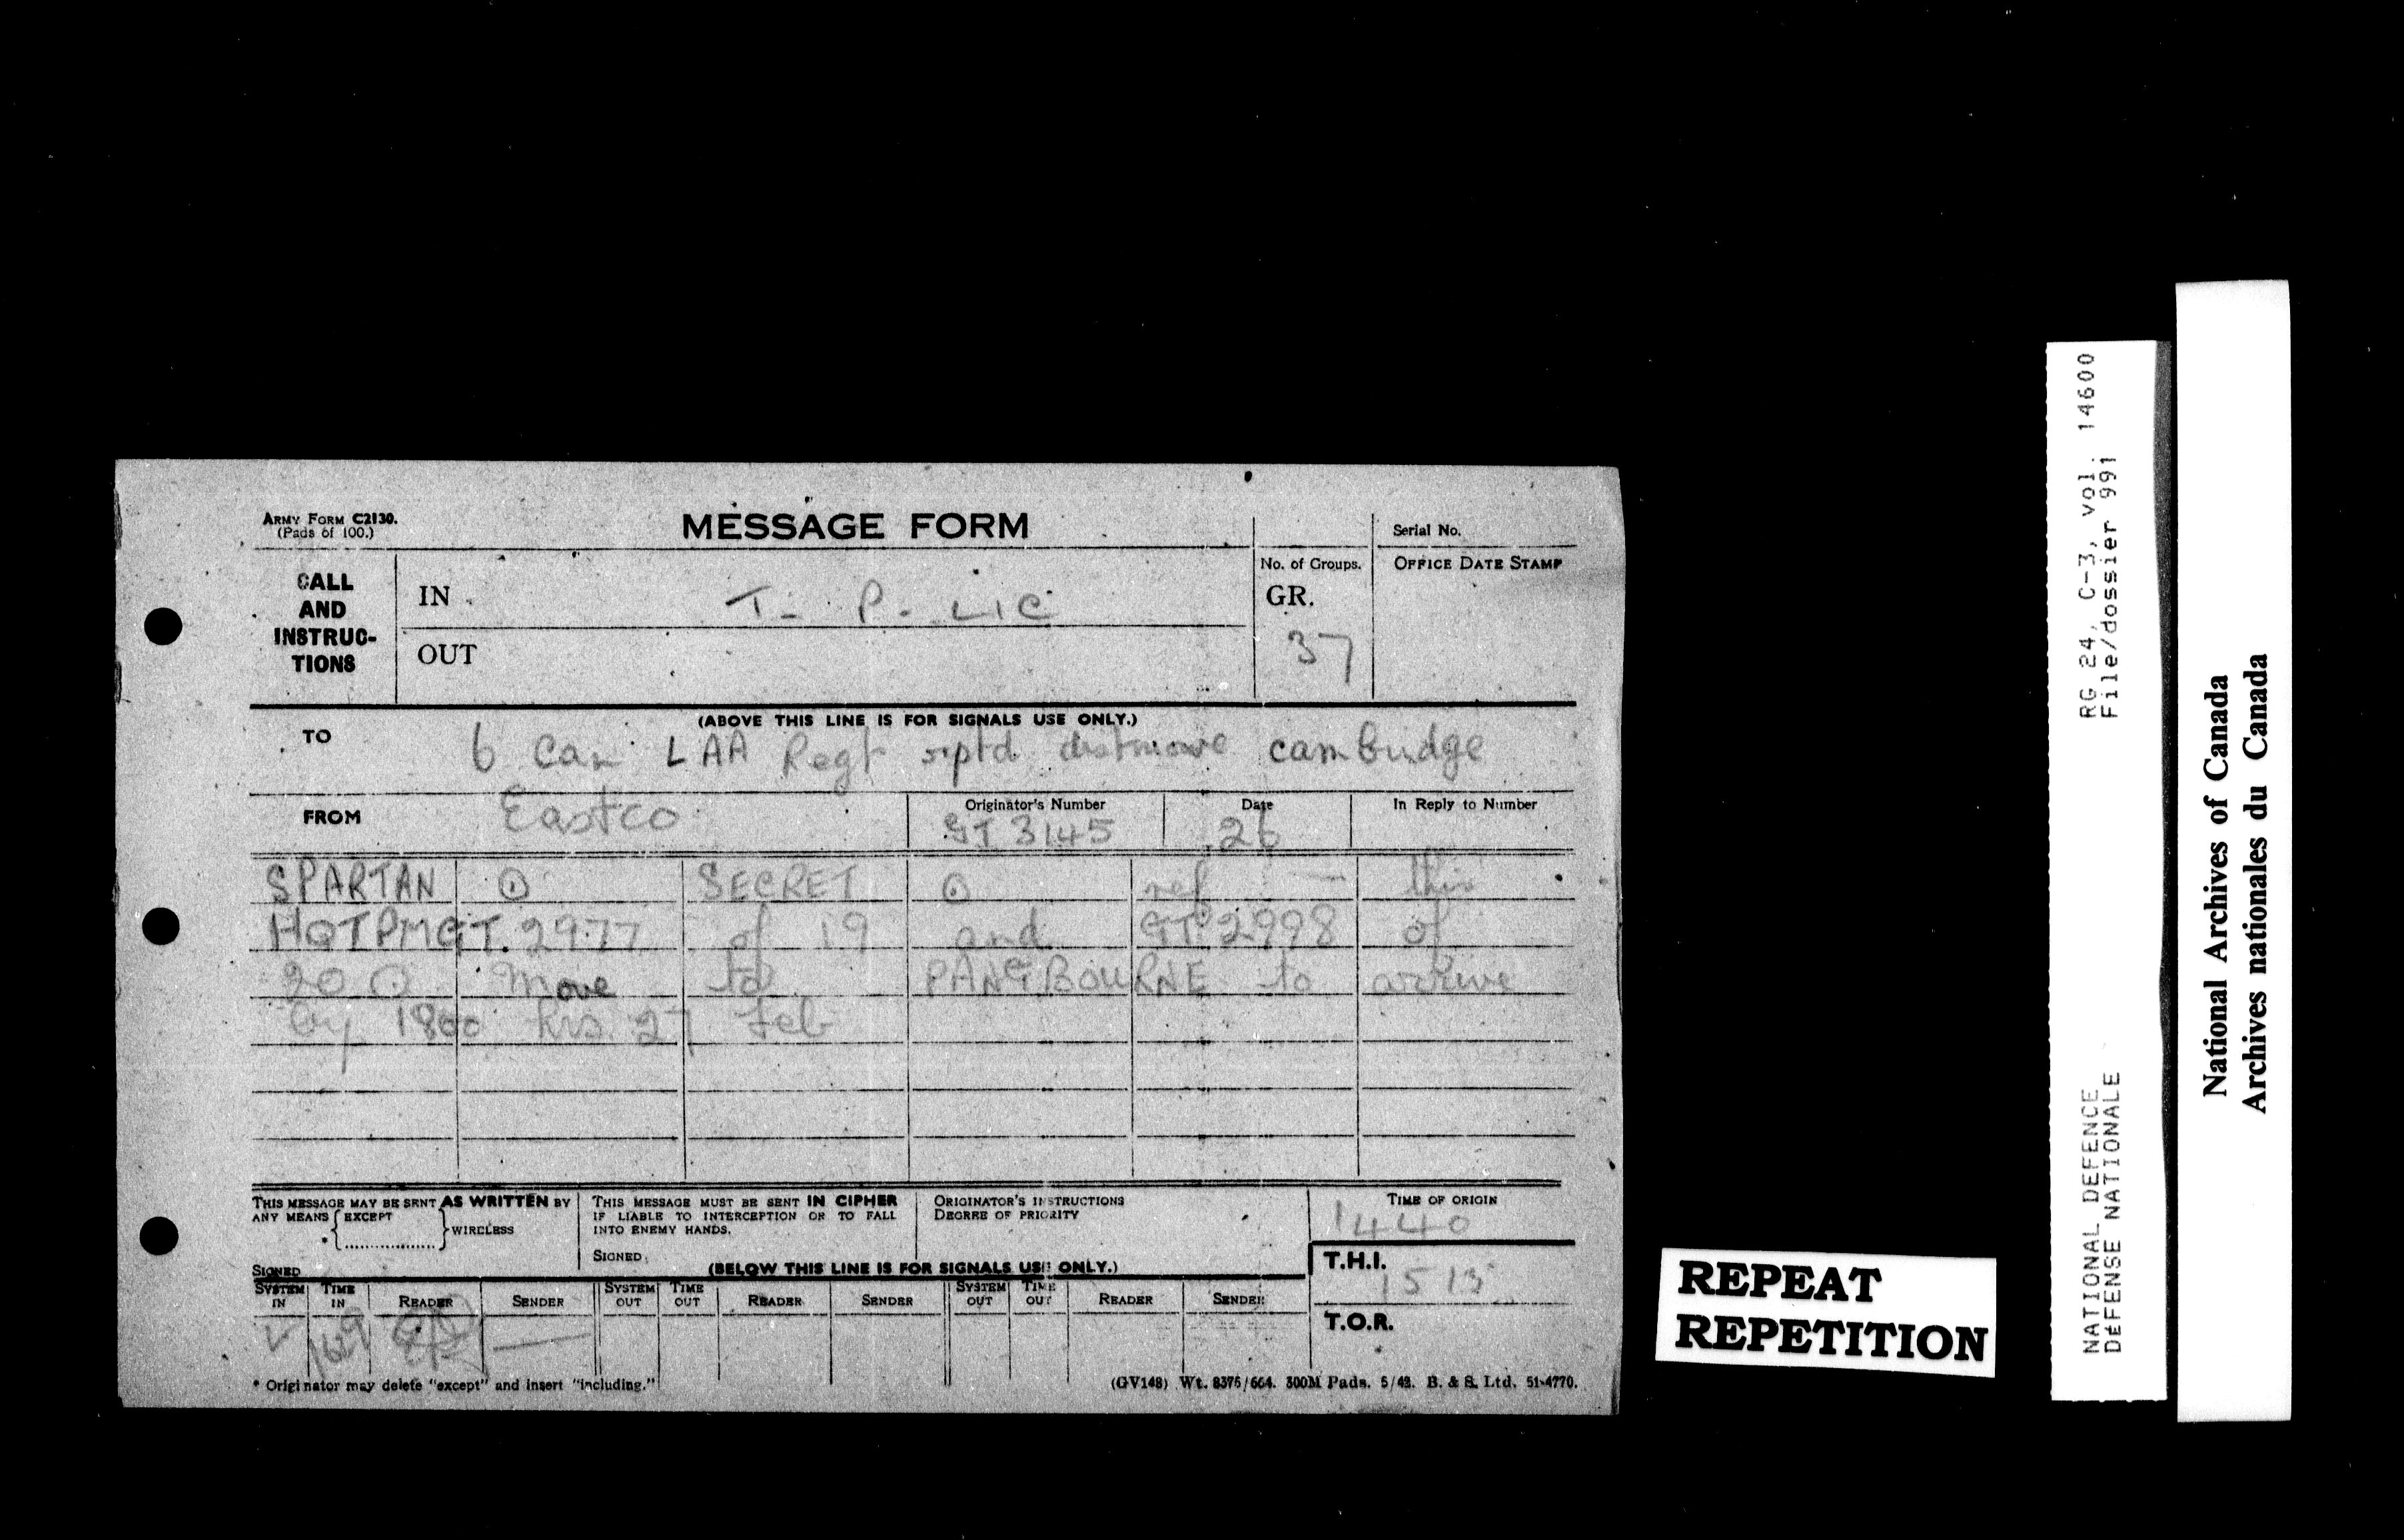 ARMY FORM C2130.
(Pads of 100.)
MESSAGE FORM
Serial No.
CALL AND INSTRUC-TIONS
IN T- P- LIC
OUT
No. of Groups.
GR.
37
OFFICE DATE STAMP
(ABOVE THIS LINE IS FOR SIGNALS USE ONLY.)
TO 6 Can LAA Regt rptd distmove cambridge
FROM Eastco
Originator's Number
GT 3145
Date
26
In Reply to Number
SPARTAN ⊙ SECRET ⊙ ref — this
HQTPMGT. 2977 of 19 and GT 2998 of
20 ⊙ Move to PANGBOURNE to arrive
by 1800 hrs. 27 Feb
THIS MESSAGE MAY BE SENT AS WRITTEN BY
ANY MEANS { EXCEPT
* .................. } WIRELESS
SIGNED
THIS MESSAGE MUST BE SENT IN CIPHER
IF LIABLE TO INTERCEPTION OR TO FALL
INTO ENEMY HANDS.
SIGNED
ORIGINATOR'S INSTRUCTIONS
DEGREE OF PRIORITY
TIME OF ORIGIN
1440
(BELOW THIS LINE IS FOR SIGNALS USE ONLY.)
T.H.I.
1515
T.O.R.
SYSTEM IN TIME IN READER SENDER SYSTEM OUT TIME OUT READER SENDER SYSTEM OUT TIME OUT READER SENDER
1629
* Originator may delete "except" and insert "including."
(GV148) Wt. 8375/664. 300M Pads. 5/42. B. & S. Ltd. 51-4770.
REPEAT
REPETITION
RG 24, C-3, vol. 14600
File/dossier 991
NATIONAL DEFENCE
DÉFENSE NATIONALE
National Archives of Canada
Archives nationales du Canada